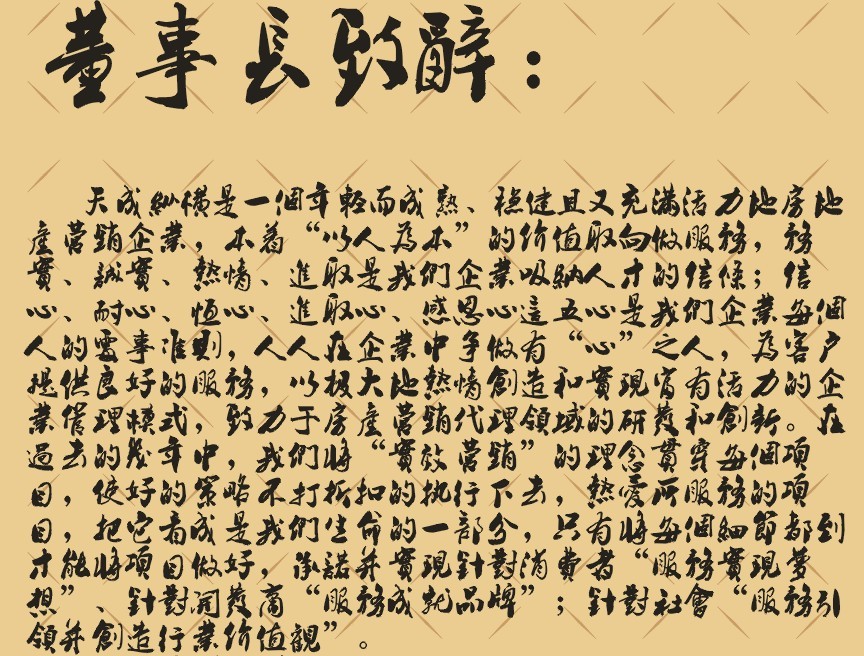 董事長致辭：
天成縱橫是一個年輕而成熟、穩健且又充滿活力地房地
產營銷企業，本着“以人為本”的价值取向做服務，務
實、誠實、熱情、進取是我們企業吸納人才的信條；信
心、耐心、恆心、進取心、感恩心這五心是我們企業每個
人的處事准則，人人在企業中爭做有“心”之人，為客户
提供良好的服務，以极大地熱情創造和實現富有活力的企
業管理模式，致力于房產營銷代理領域的研發和創新。在
過去的幾年中，我們將“實效營銷”的理念貫穿每個項
目，使好的策略不打折扣的执行下去，熱愛所服務的項
目，把它看成是我們生命的一部分，只有將每個細節都到
才能將項目做好，承諾并實現針對消費者“服務實現夢
想”、針對開發商“服務成就品牌”；針對社會“服務引
領并創造行業价值觀”。